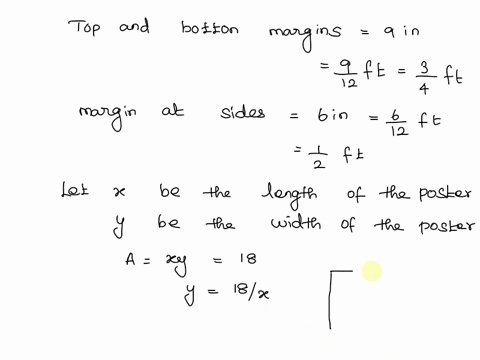 Top and botton margins = 9 in
= 9/12 ft = 3/4 ft
margin at sides = 6 in = 6/12 ft
= 1/2 ft
Let x be the length of the poster
y be the width of the poster
A = xy = 18
y = 18/x